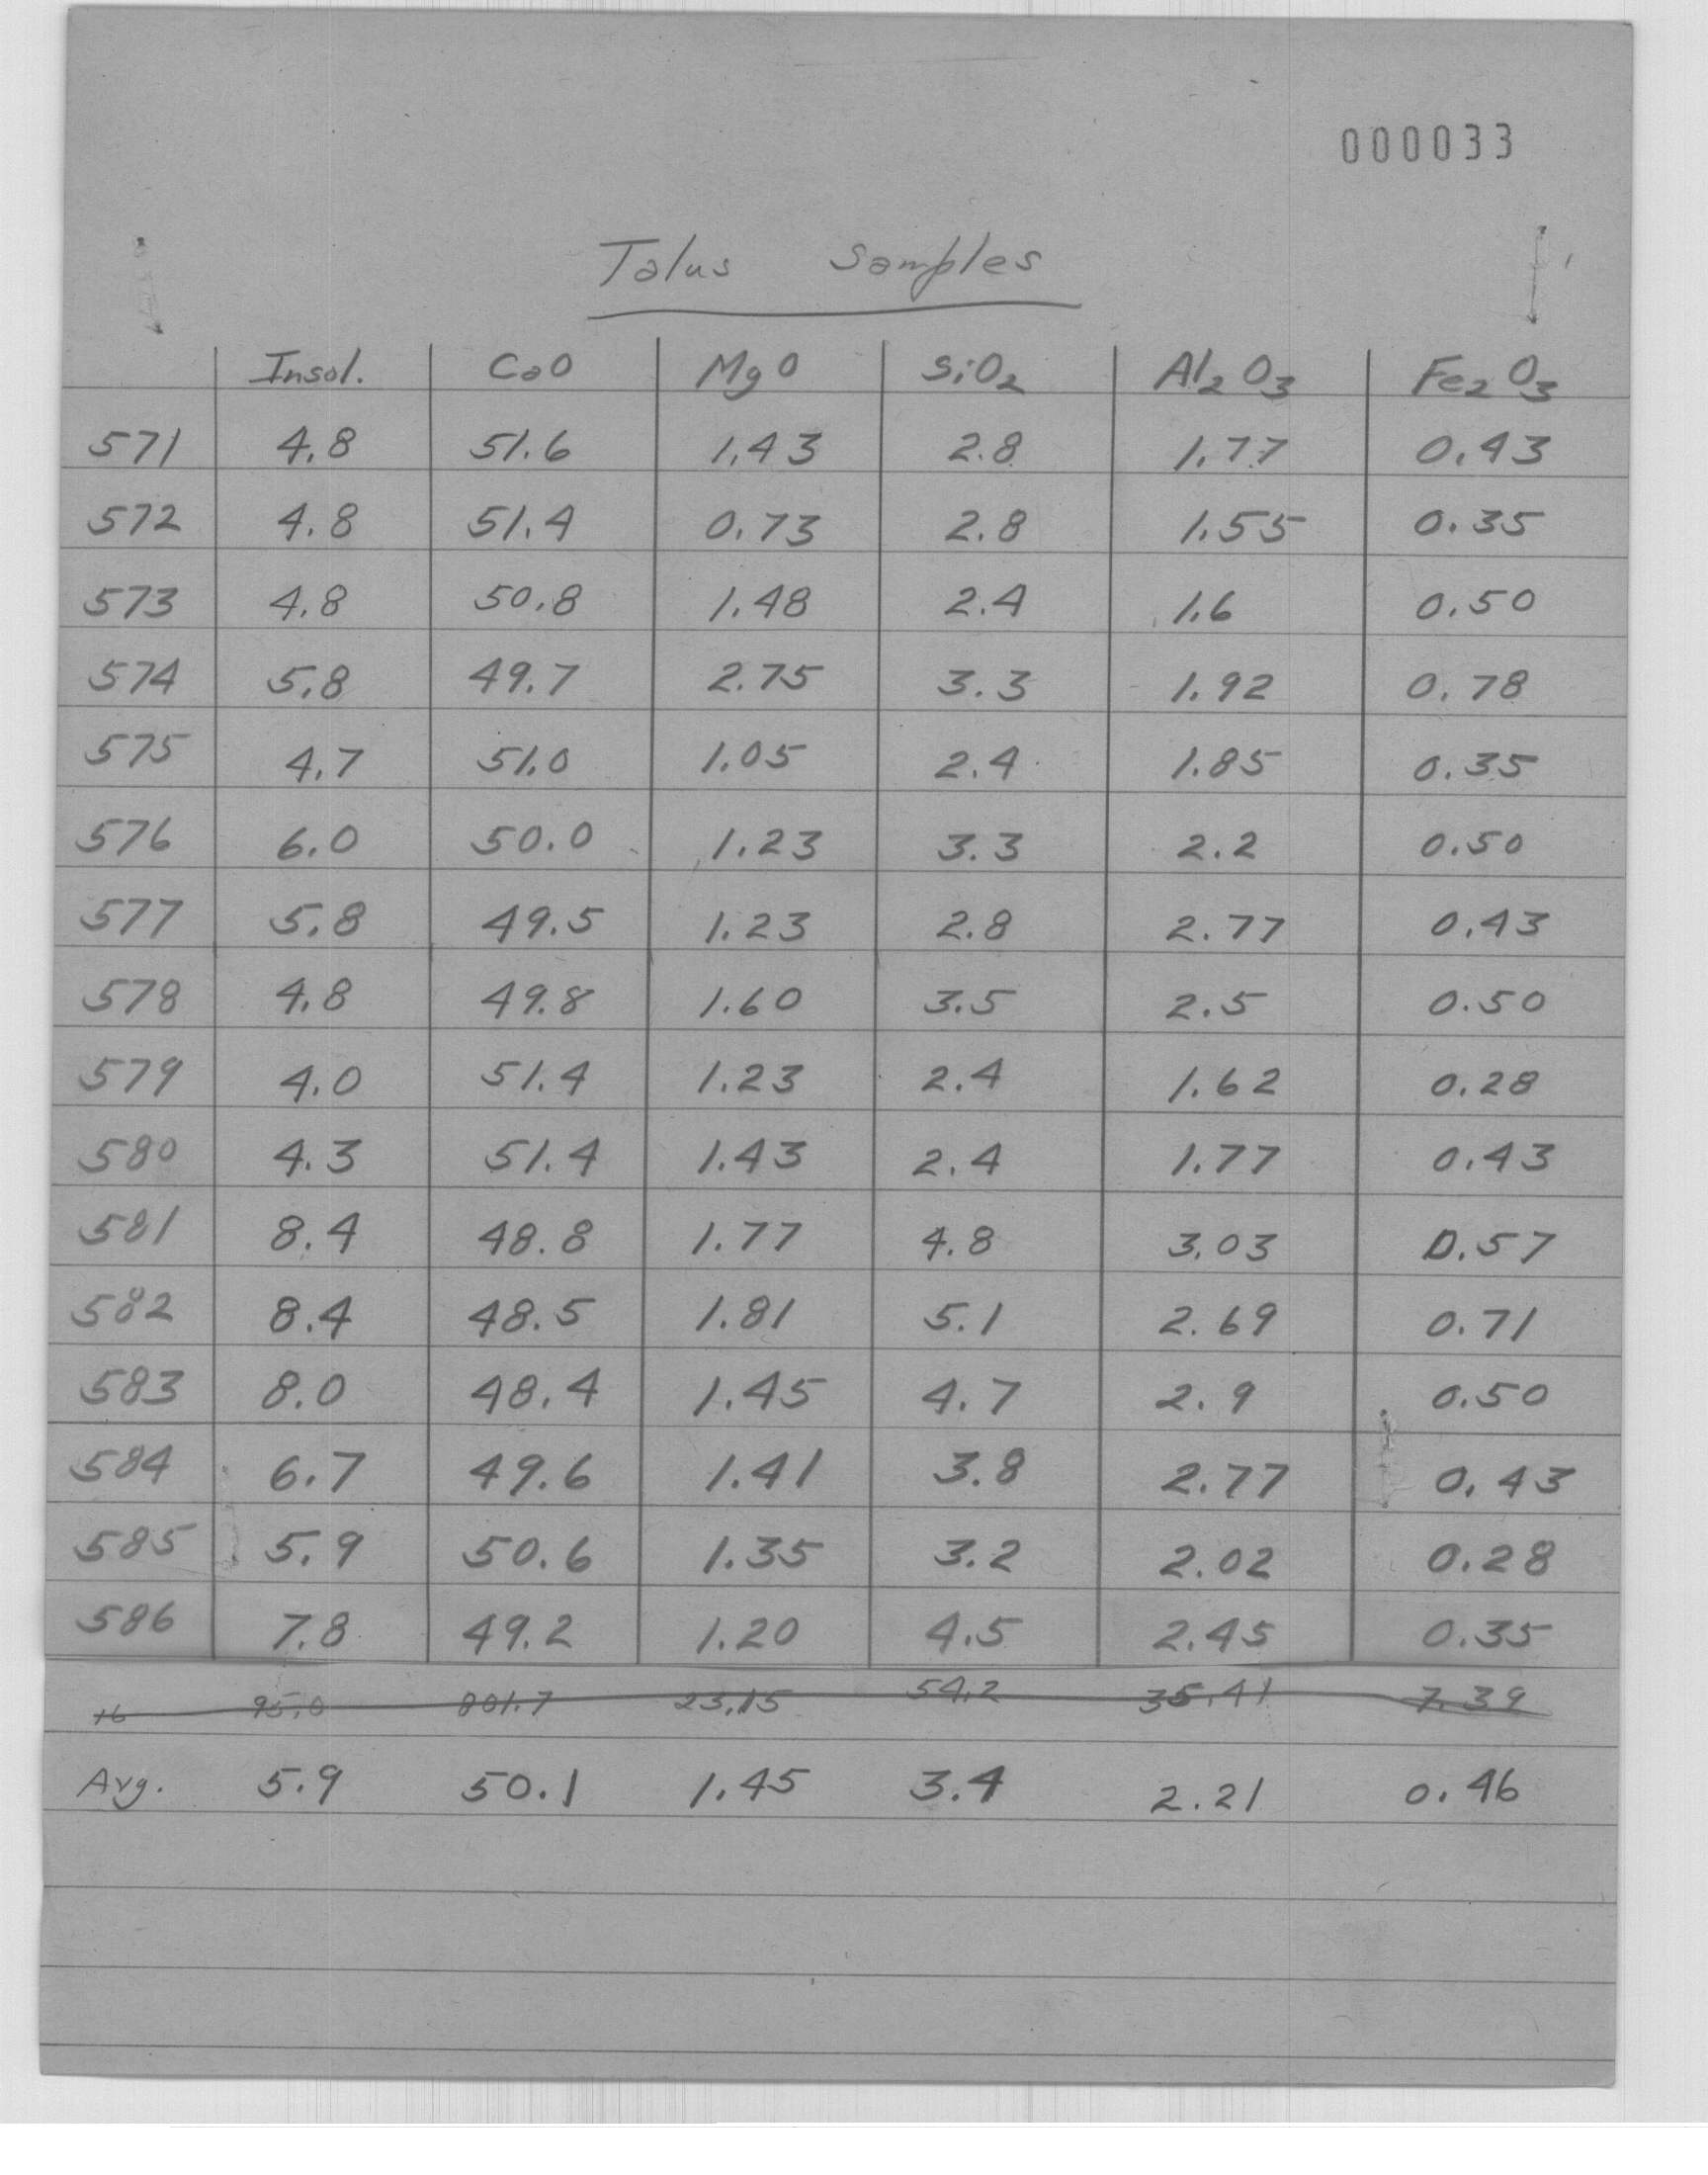 000033
Talus Samples
Insol. CaO MgO SiO2 Al2O3 Fe2O3
571 4.8 51.6 1.43 2.8 1.77 0.43
572 4.8 51.4 0.73 2.8 1.55 0.35
573 4.8 50.8 1.48 2.4 1.6 0.50
574 5.8 49.7 2.75 3.3 1.92 0.78
575 4.7 51.0 1.05 2.4 1.85 0.35
576 6.0 50.0 1.23 3.3 2.2 0.50
577 5.8 49.5 1.23 2.8 2.77 0.43
578 4.8 49.8 1.60 3.5 2.5 0.50
579 4.0 51.4 1.23 2.4 1.62 0.28
580 4.3 51.4 1.43 2.4 1.77 0.43
581 8.4 48.8 1.77 4.8 3.03 0.57
582 8.4 48.5 1.81 5.1 2.69 0.71
583 8.0 48.4 1.45 4.7 2.9 0.50
584 6.7 49.6 1.41 3.8 2.77 0.43
585 5.9 50.6 1.35 3.2 2.02 0.28
586 7.8 49.2 1.20 4.5 2.45 0.35
16 95.0 801.7 23.15 54.2 35.41 7.39
Avg. 5.9 50.1 1.45 3.4 2.21 0.46